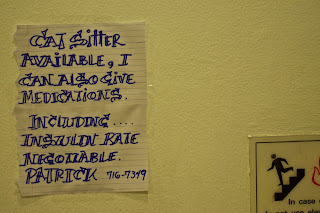 CAT SITTER
AVAILABLE, I
CAN ALSO GIVE
MEDICATIONS.
INCLUDING....
INSULIN RATE
NEGOTIABLE.
PATRICK 716-7319
In case o